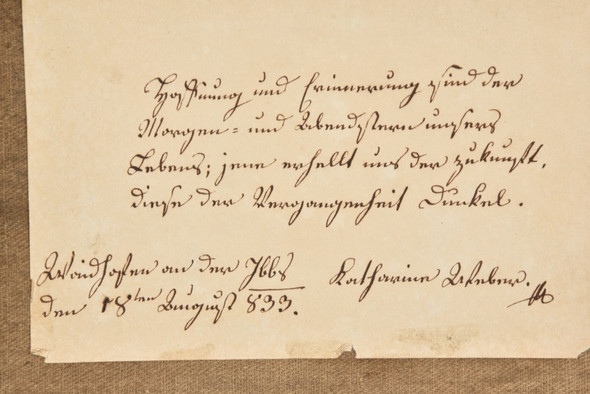 Hoffnung und Erinnerung sind der
Morgen= und Abendstern unsers
Lebens; jene erhellt uns der Zukunft,
diese der Vergangenheit Dunkel.
Waidhofen an der Ybbs
den 18ten August 833.
Katharine Weber.